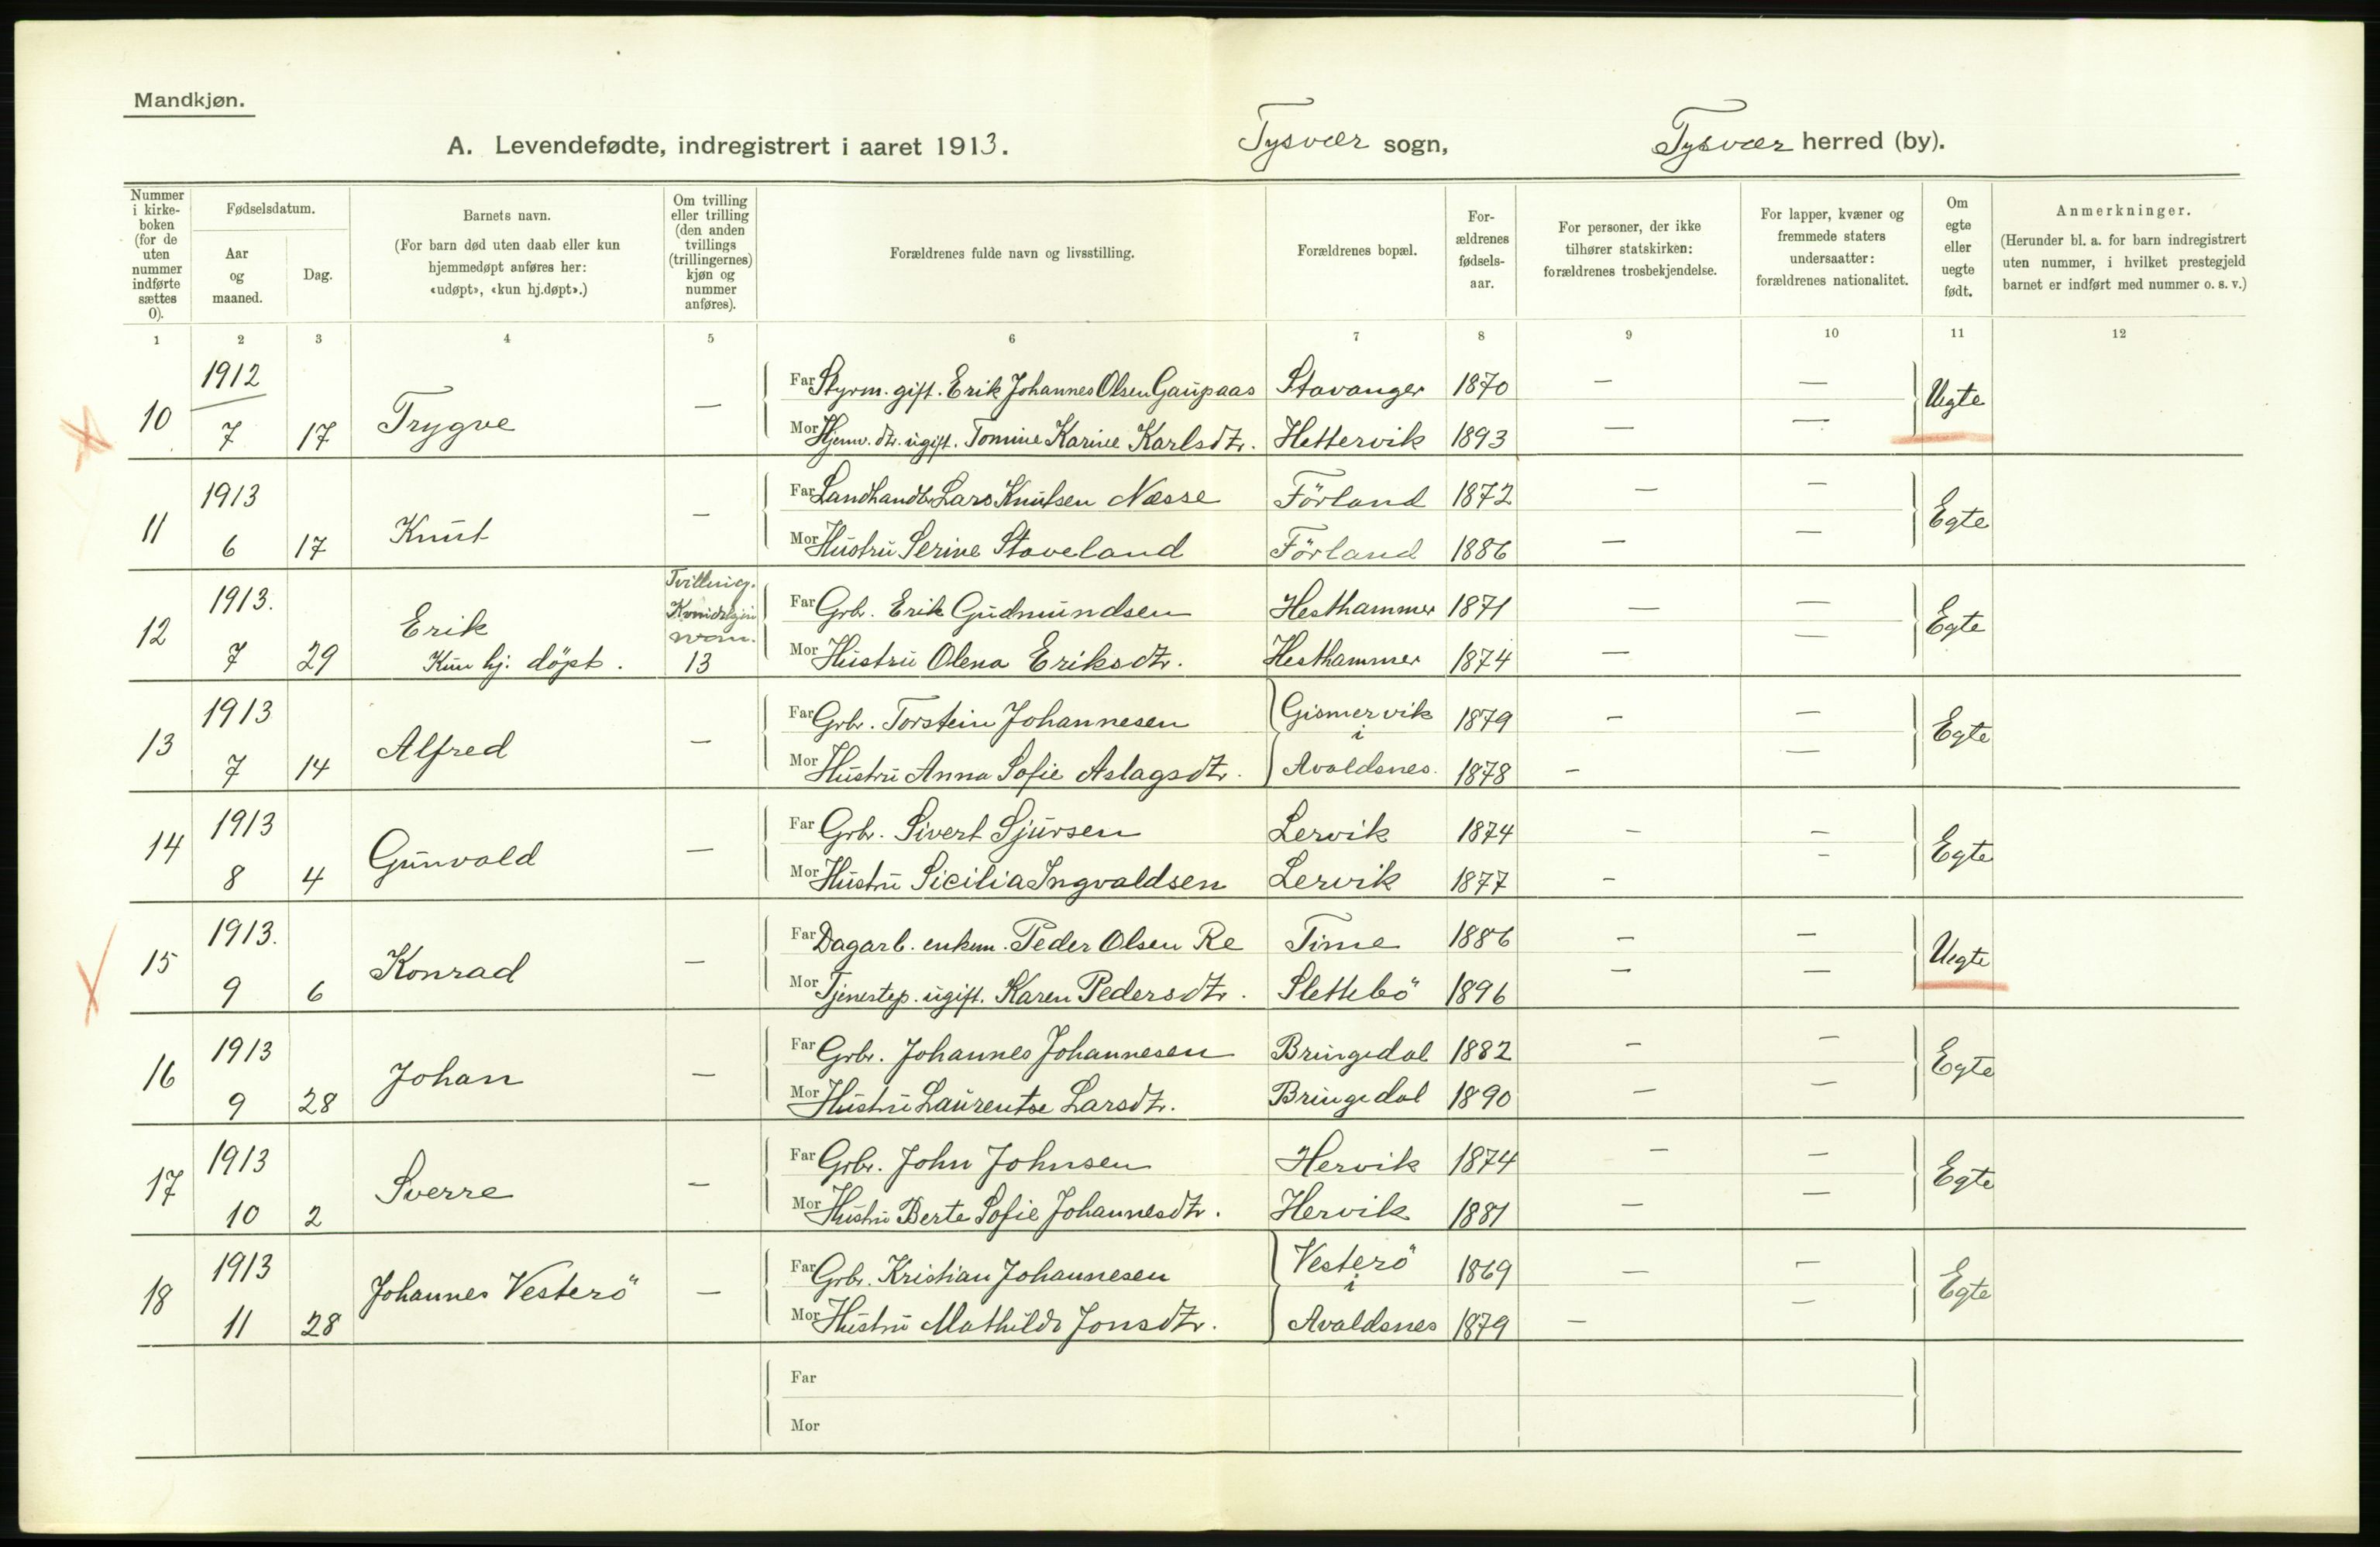 Mandkjøn.
A. Levendefødte, indregistrert i aaret 1913. Tysvær sogn, Tysvær herred (by).
Nummer i kirke-boken (for de uten nummer indførte sættes 0).
Fødselsdatum.
Aar og maaned.
Dag.
Barnets navn.
(For barn død uten daab eller kun hjemmedøpt anføres her: «udøpt», «kun hj.døpt».)
Om tvilling eller trilling (den anden tvillings (trillingernes) kjøn og nummer anføres).
Forældrenes fulde navn og livsstilling.
Forældrenes bopæl.
For-ældrenes fødsels-aar.
For personer, der ikke tilhører statskirken: forældrenes trosbekjendelse.
For lapper, kvæner og fremmede staters undersaatter: forældrenes nationalitet.
Om egte eller uegte født.
Anmerkninger.
(Herunder bl. a. for barn indregistrert uten nummer, i hvilket prestegjeld barnet er indført med nummer o. s. v.)
1 2 3 4 5 6 7 8 9 10 11 12
1912 Far Styrm. gift. Erik Johannes Olsen Gaupaas Stavanger 1870 — —
10 7 17 Trygve — Mor Hjemv. dtr. ugift. Tomine Karine Karlsdtr. Hettervik 1893 — — Uegte
1913 Far Landhandl. Lars Knutsen Næsse Förland 1872 — —
11 6 17 Knut — Mor Hustru Serine Stoveland Förland 1886 — — Egte
1913. Tvilling. Far Grbr. Erik Gudmundsen Hesthammer 1871 — —
12 7 29 Erik Kun hj. döpt. 13 Mor Hustru Olena Eriksdtr. Hesthammer 1874 — — Egte
1913 Far Grbr. Torstein Johannesen Gismervik i 1879 — —
13 7 14 Alfred — Mor Hustru Anna Sofie Aslagsdtr. Avaldsnes. 1878 — — Egte
1913 Far Grbr. Sivert Sjursen Lervik 1874 — —
14 8 4 Gunvald — Mor Hustru Sicilia Ingvaldsen Lervik 1877 — — Egte
1913. Far Dagarb. enkem. Peder Olsen Re Time 1886 — —
15 9 6 Konrad — Mor Tjenestep. ugift. Karen Pedersdtr. Slettebö 1896 — — Uegte
1913 Far Grbr. Johannes Johannesen Bringedal 1882 — —
16 9 28 Johan — Mor Hustru Laurentse Larsdtr. Bringedal 1890 — — Egte
1913 Far Grbr. John Johnsen Hervik 1874 — —
17 10 2 Sverre — Mor Hustru Berte Sofie Johannesdtr. Hervik 1881 — — Egte
1913 Far Grbr. Kristian Johannesen Vesterö i 1869 — —
18 11 28 Johannes Vesterö — Mor Hustru Mathilde Jonsdtr. Avaldsnes 1879 — — Egte
Far
Mor